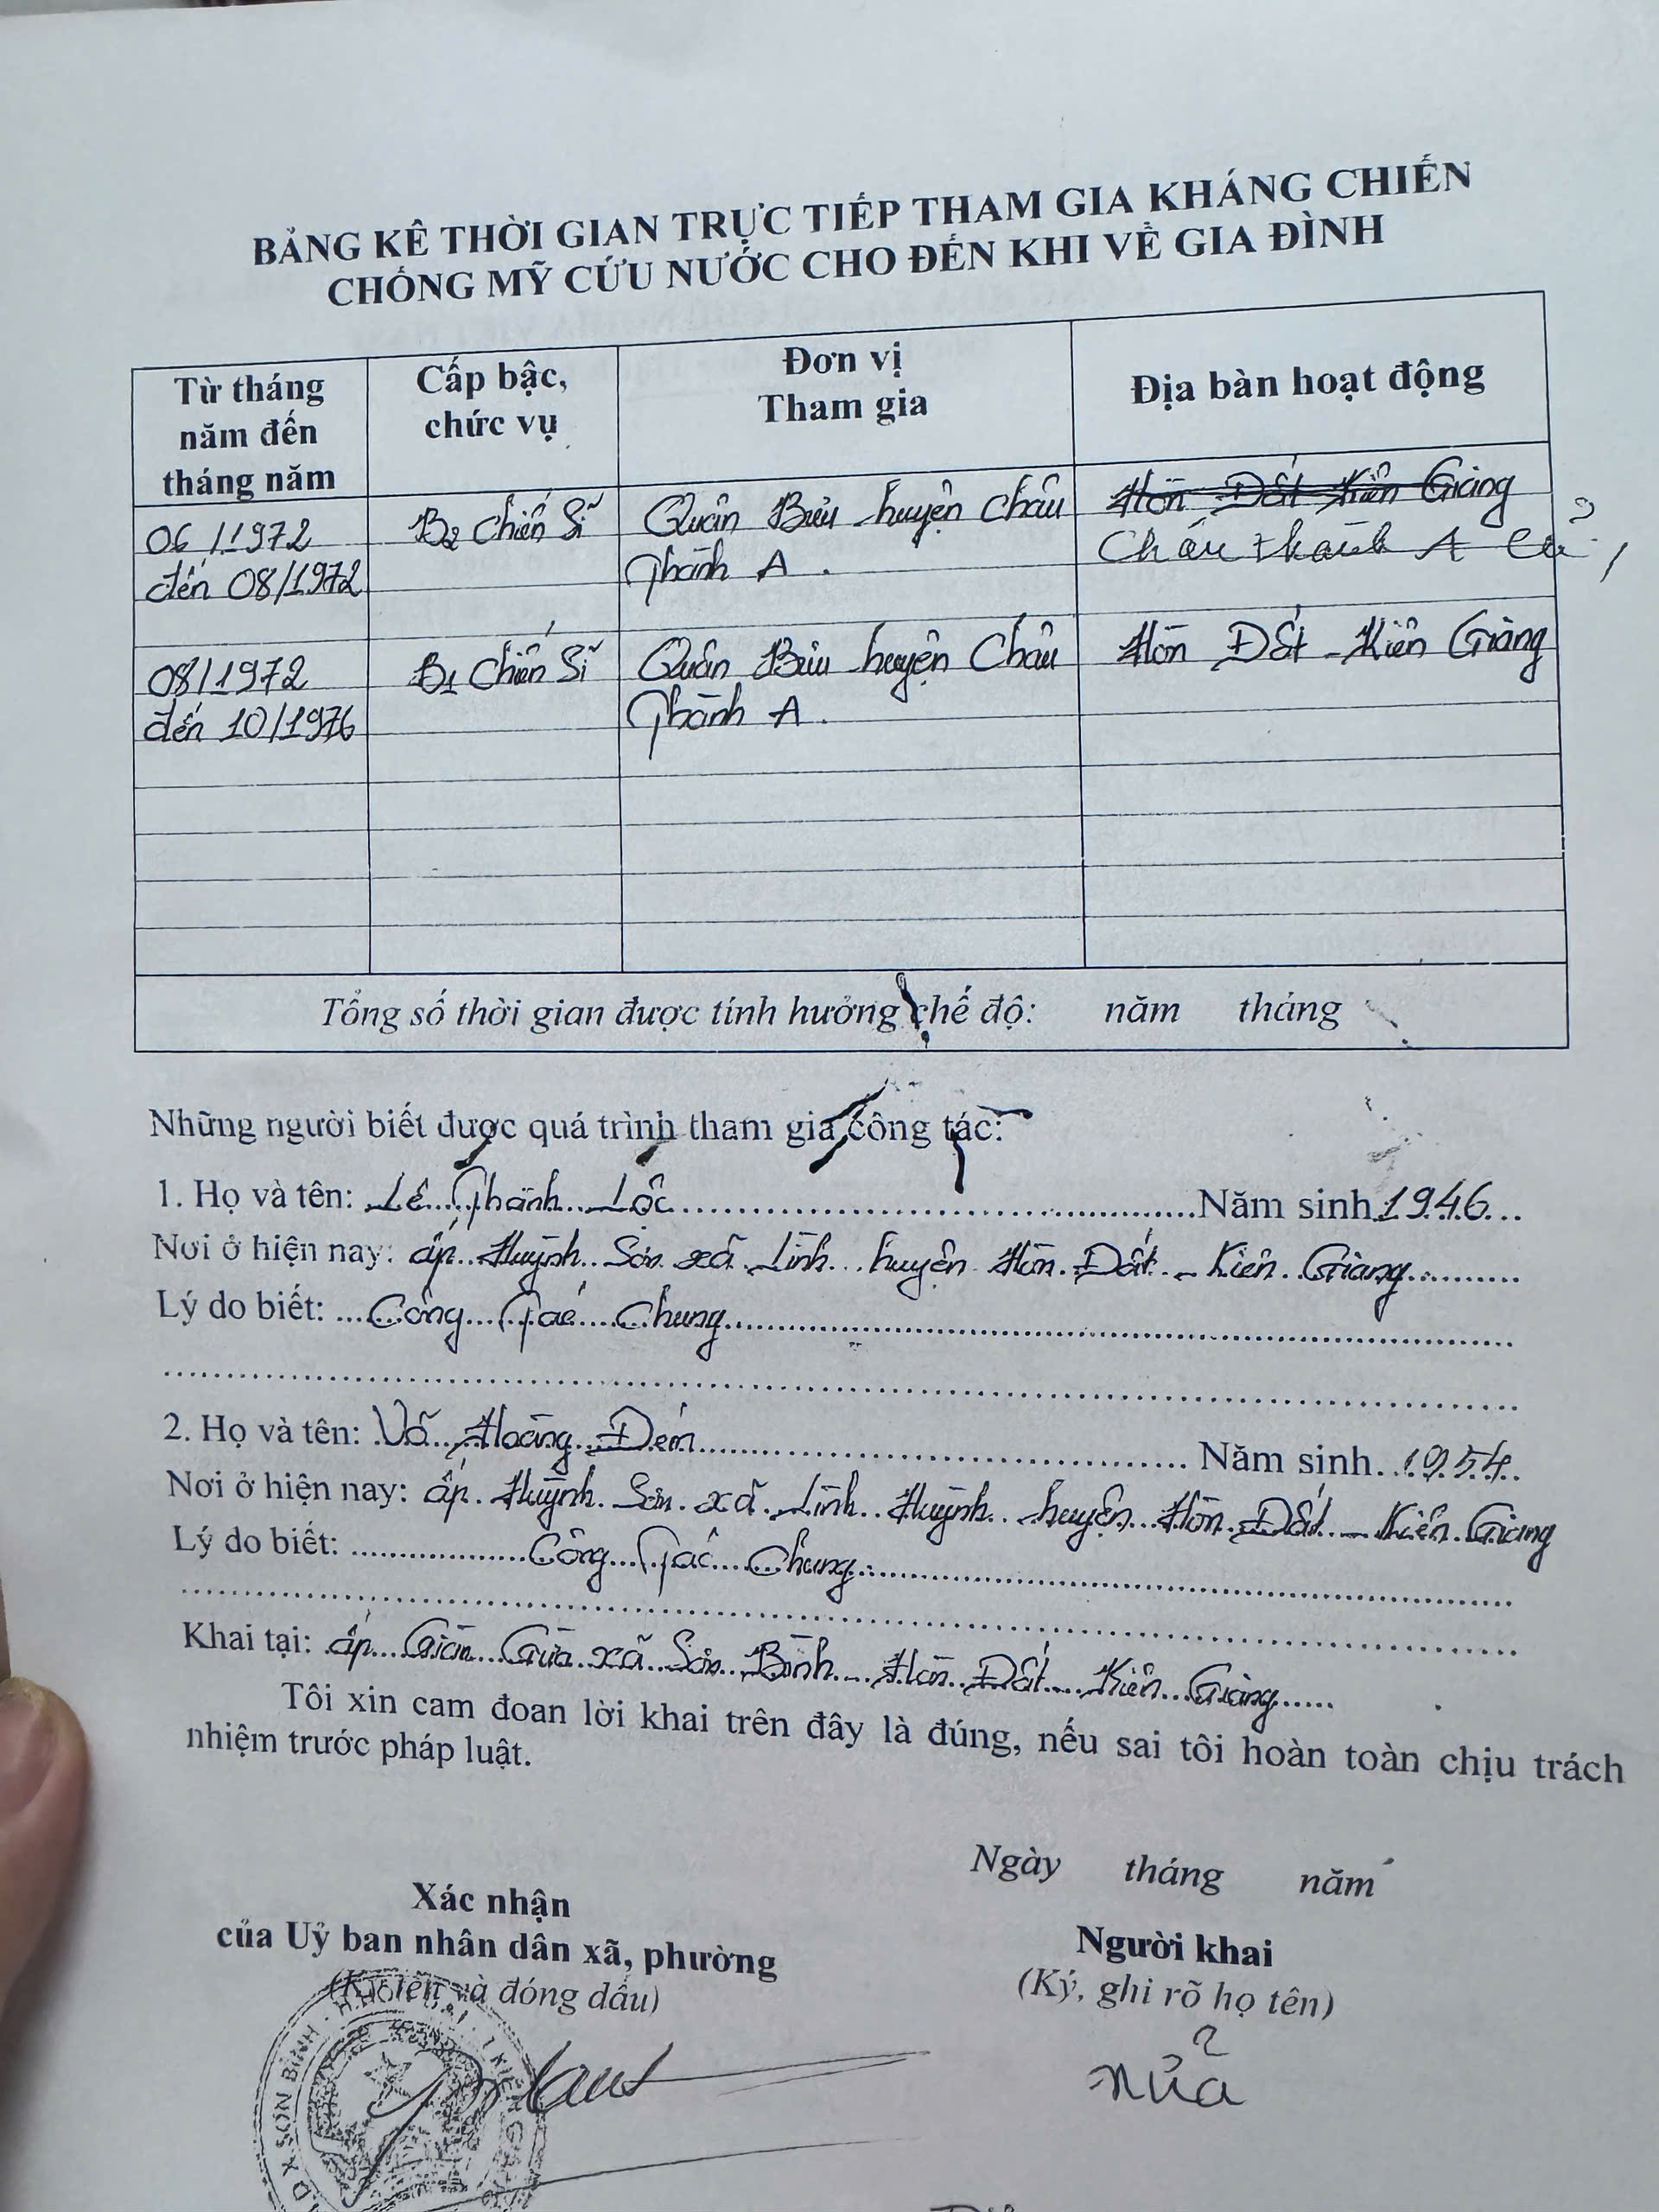 BẢNG KÊ THỜI GIAN TRỰC TIẾP THAM GIA KHÁNG CHIẾN
CHỐNG MỸ CỨU NƯỚC CHO ĐẾN KHI VỀ GIA ĐÌNH
Từ tháng năm đến tháng năm
Cấp bậc, chức vụ
Đơn vị Tham gia
Địa bàn hoạt động
06/1972
đến 08/1972
B2 Chiến Sĩ
Quân Bưu huyện Châu
Thành A.
Hòn Đất Kiên Giang
Châu thành A cũ
08/1972
đến 10/1976
B1 Chiến Sĩ
Quân Bưu huyện Châu
Thành A.
Hòn Đất - Kiên Giang
Tổng số thời gian được tính hưởng chế độ: năm tháng
Những người biết được quá trình tham gia công tác:
1. Họ và tên: Lê Thành Lộc Năm sinh 1946
Nơi ở hiện nay: ấp Huỳnh Sơn xã Lình huyện Hòn Đất - Kiên Giang
Lý do biết: Công Tác Chung
2. Họ và tên: Võ Hoàng Đem Năm sinh 1954
Nơi ở hiện nay: ấp Huỳnh Sơn xã Lình Huỳnh huyện Hòn Đất - Kiên Giang
Lý do biết: Công Tác Chung
Khai tại: ấp Giàn Gừa xã Sơn Bình - Hòn Đất Kiên Giang
Tôi xin cam đoan lời khai trên đây là đúng, nếu sai tôi hoàn toàn chịu trách
nhiệm trước pháp luật.
Ngày tháng năm
Xác nhận
của Uỷ ban nhân dân xã, phường
(Ký tên và đóng dấu)
Người khai
(Ký, ghi rõ họ tên)
X SƠN BÌNH
nửa